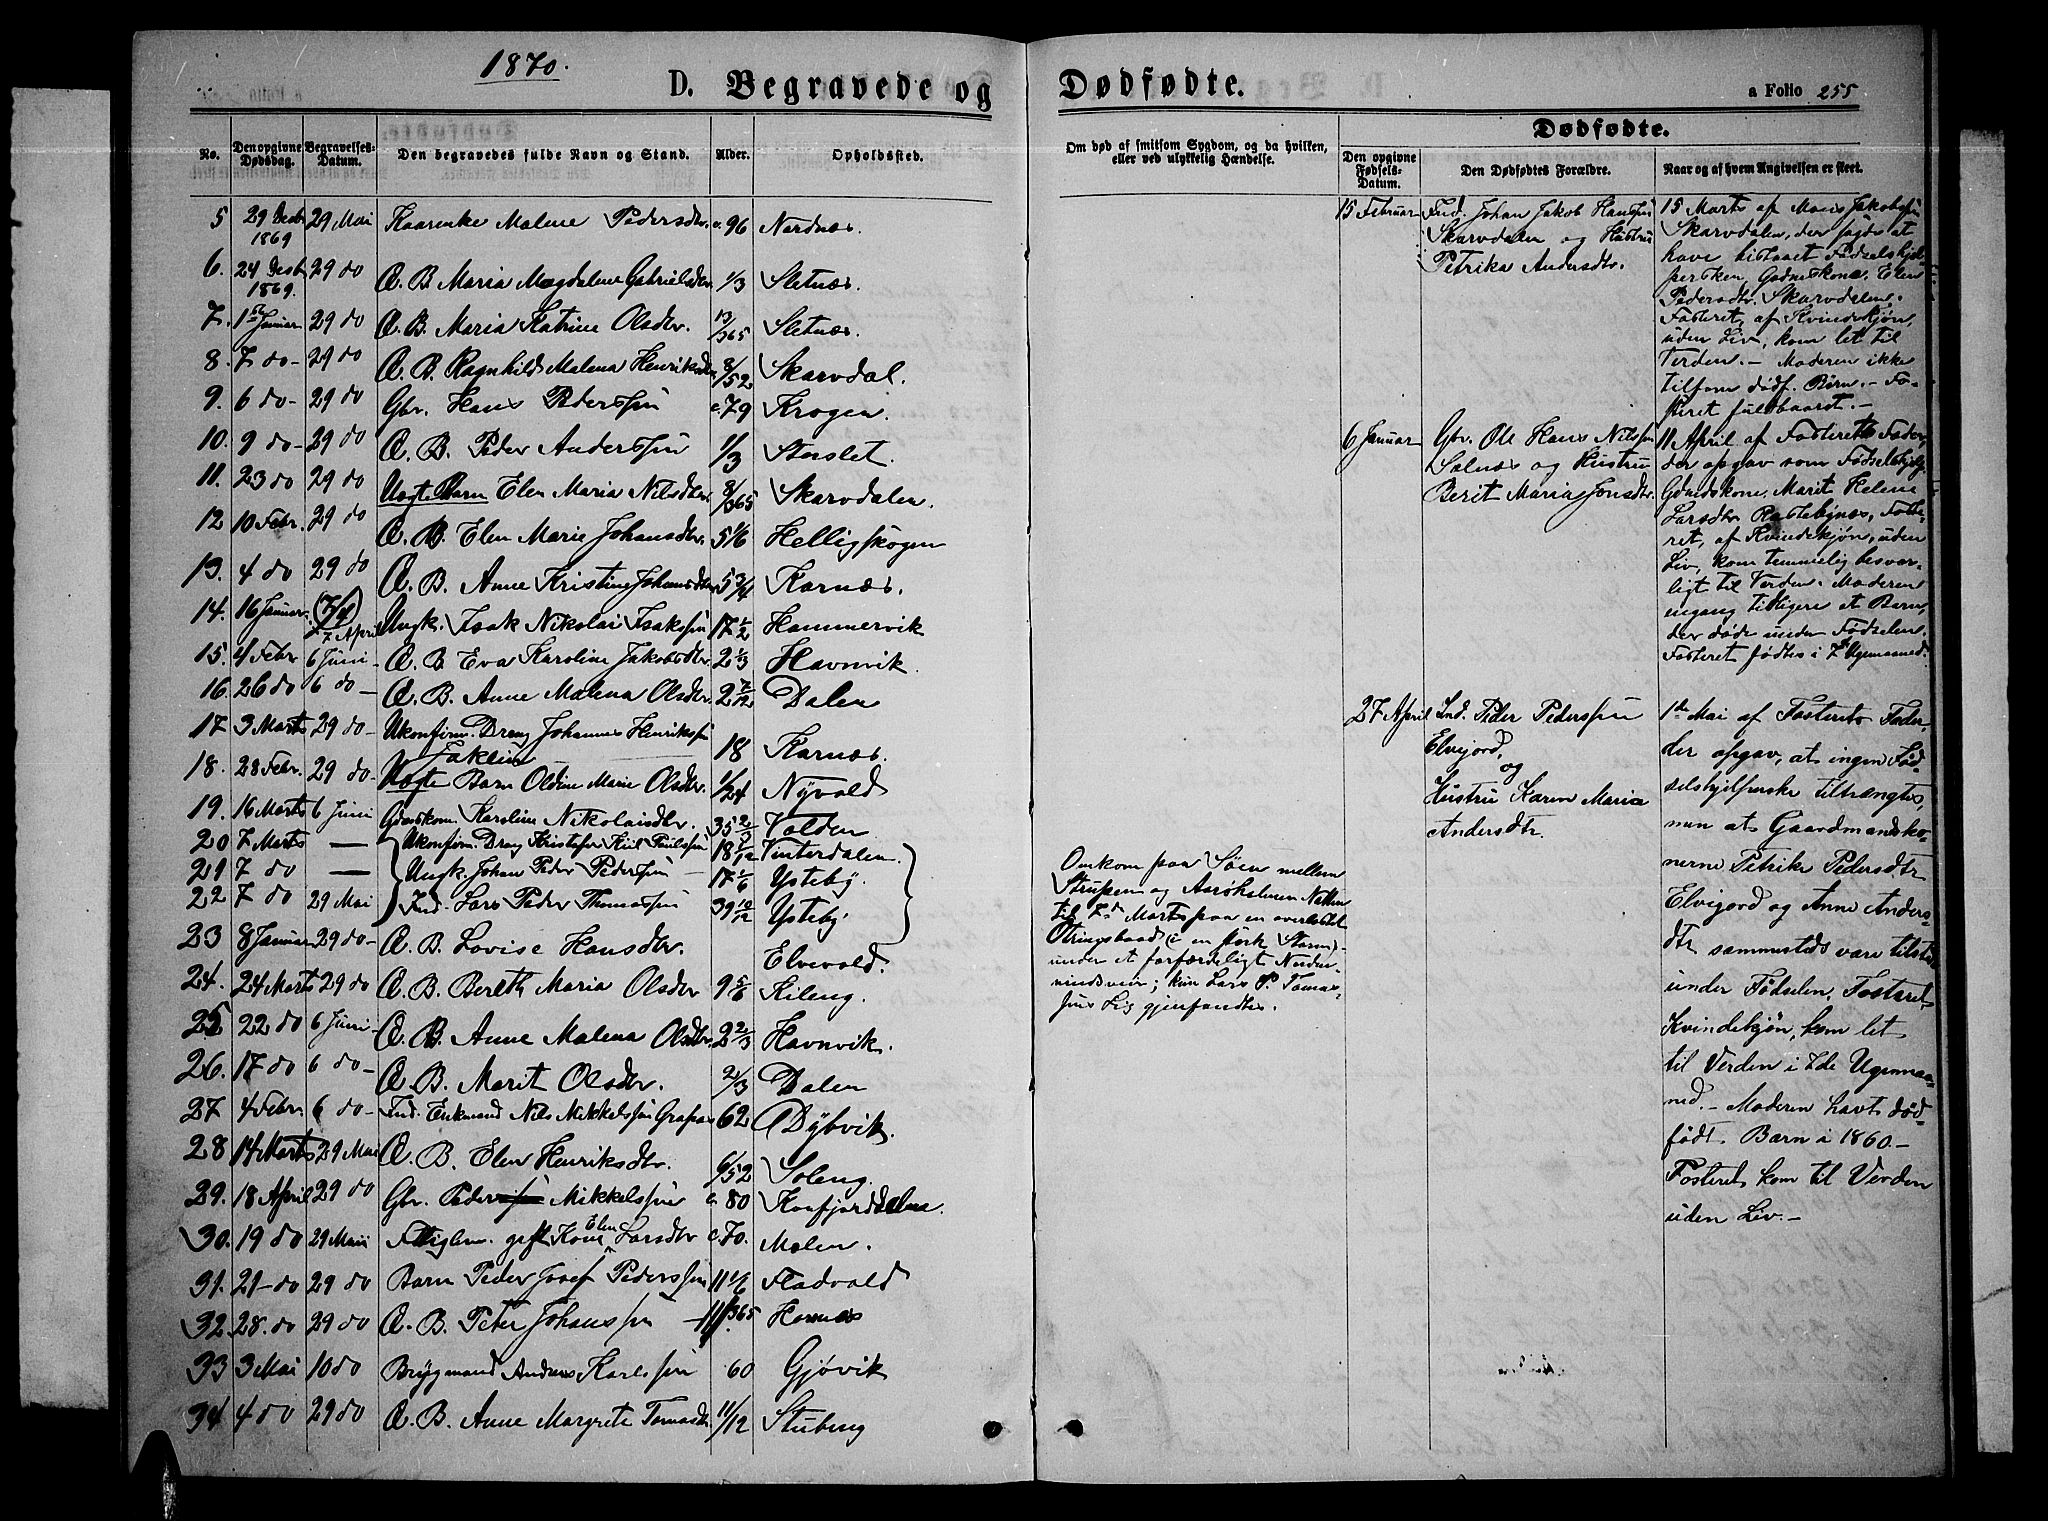 1870.
D. Begravede og
No. Den opgivne Dødsdag. Begravelses-Datum. Den begravedes fulde Navn og Stand. Alder. Opholdssted.
5 29 Decbr 1869 29 Mai Kaarenke Malene Pedersdtr. c. 96 Nordnæs.
6. 24 Decbr 1869. 29 do Æ. B. Maria Magdalene Gabrielsdtr 1/3 Sletnæs.
7. 1ste Januar 29 do Æ. B. Maria Katrine Olsdtr. 13/365 Sletnæs.
8. 7 do - 29 do Æ. B. Ragnhild Malena Henriksdtr 8/52 Skarvdal.
9. 6 do - 29 do Gbr. Hans Pederssøn c. 79 Krogen.
10. 9 do - 29 do Æ. B. Peder Anderssøn 1/3 Storslet.
11. 23 do 29 do Uægte Barn Elen Maria Nilsdtr 8/365 Skarvdalen.
12 10 Febr. 29 do Æ. B. Elen Marie Johansdtr. 5 1/6 Helligskogen
13. 4 do 29 do Æ. B. Anne Kristine Johansdtr 5 3/4 Karnæs.
14. 16 Januar 7 April Ungk. Isak Nikolai Isakssøn 17 1/2 Hammervik
15. 4 Febr 6 Juni - Æ. B. Eva Karoline Jakobsdtr 2 1/3 Havnvik.
16. 26 do 6 do - Æ. B. Anne Malena Olsdtr. 2 7/12 Dalen
17 3 Marts 29 do - Ukonfirm. Dreng Johannes Henrikssøn 18 Karnæs.
18. 28 Febr. 29 do - Uægte Barn Oldine Marie Olsdtr. 1/24 Nyvold
19. 16 Marts 6 Juni Gdmskon. Karoline Nikolaisdtr. 35 2/3 Volden
20 7 Marts — Ukonfirm. Dreng Kristofer Kiil Poulssøn 18 1/12 Vinterdalen.
21 7 do — Ungk. Johan Peder Pederssøn - 17 1/6 Ysteby.
22 7 do 29 Mai Ind. Lars Peder Thomassøn 39 10/12 Ysteby
23 8 Januar 29 do - Æ. B. Lovise Hansdtr. Elvevold.
24. 24 Marts 29 do Æ. B. Bereth Maria Olsdtr 9 5/6 Kileng.
25 22 do 6 Juni - Æ. B. Anne Malena Olsdtr. 2 2/3 Havnvik.
26. 17 do 6 do - Æ. B. Marit Olsdtr. 2/3 Dalen
27 4 Febr 6 do - Ind. Enkmand Nils Mikkelssøn 62 Dybvik.
28 14 Marts 29 Mai Æ. B. Elen Henriksdtr. 6/52 Soleng.
29. 18 April 29 do Gbr. Peder Mikkelssøn c. 80 Kaafjorddalen.
30. 19 do 29 Mai Fattiglem. gift Kone Elen Larsdtr c. 70. Molen.
31. 21 - do 29 do Barn Peder Josef Pederssøn 11 1/6 Fladvold
32. 28. do 29 do Æ. B. Peter Johanssøn 11/365 Hornæs
33 3 Mai 10 do Brygmand Andreas Karlssøn 60 Gjøvik
34. 4 do 29 do Æ. B. Anne Margrete Tomasdtr. 11/12 Stubeng
Dødfødte.
a Folio 255
Om død af smitsom Sygdom, og da hvilken, eller ved ulykkelig Hændelse.
Dødfødte.
Den opgivne Fødsels-Datum. Den Dødfødtes Forældre. Naar og af hvem Angivelsen er skeet.
Omkom paa Søen mellem
Strupen og Aarøholmen Natten
til 7de Marts paa en overlastet
Otringsbaad (i en stærk Storm)
under et forfærdeligt Norden-
vindsveir; kun Lars P. Tomas-
søns Lig gjenfandtes.
15 Februar
Ind. Johan Jakob Hanssøn
Skarvdalen og Hustru
Petrika Andersdtr.
15 Marts af Mons Jakobssøn
Skarvdalen, der sagde at
have bistaaet Fødselshjæl-
persken, Gdmskone. Elen
Pedersdtr. Skarvdalen.
Fosteret, af Kvindekjøn,
uden Liv, kom let til
Verden. - Moderen ikke
tilforn dødf. Børn. - Fo-
steret fuldbaaret. -
6 Januar
Gbr. Ole Hans Nilssøn
Solnæs og Hustru
Berit Maria Jonsdtr.
11 April af Fosterets Fader,
der opgav som Fødselshjelp.
Gdmdskone. Marit Helene
Larsdtr Rastebynæs, Foste-
ret, af Kvindekjøn, uden
Liv, kom temmelig besvær-
ligt til Verden. Moderen
engang tidligere et Barn,
der døde under Fødselen.
Fosteret fødtes i 7 Ugemaaned.
27 April
Ind. Peder Pederssøn
Elvejord,
og
Hustru Karen Maria
Andersdtr.
1ste Mai af Fosterets Fader,
der opgav, at ingen Fød-
selshjelperske tiltrængtes,
men at Gaardmandsko-
nerne Petrike Pedersdtr
Elvejord og Anne Anders-
dtr sammesteds vare tilstede
under Fødselen. Fosteret,
Kvindekjøn, kom let
til Verden i 7de Ugemaa-
ned. - Moderen havt død-
født Barn i 1860 -
Fosteret kom til Verden
uden Liv. -